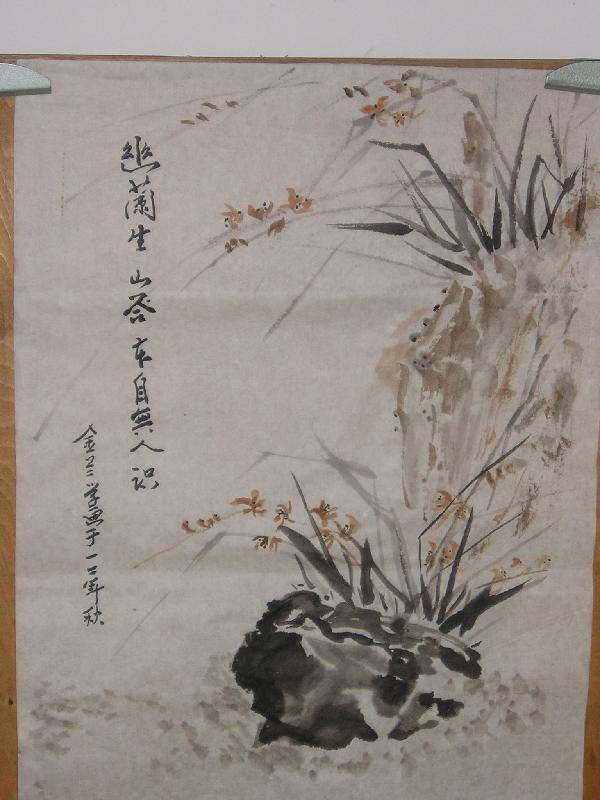 幽蘭生山谷本自無人识
金学画于一二年秋